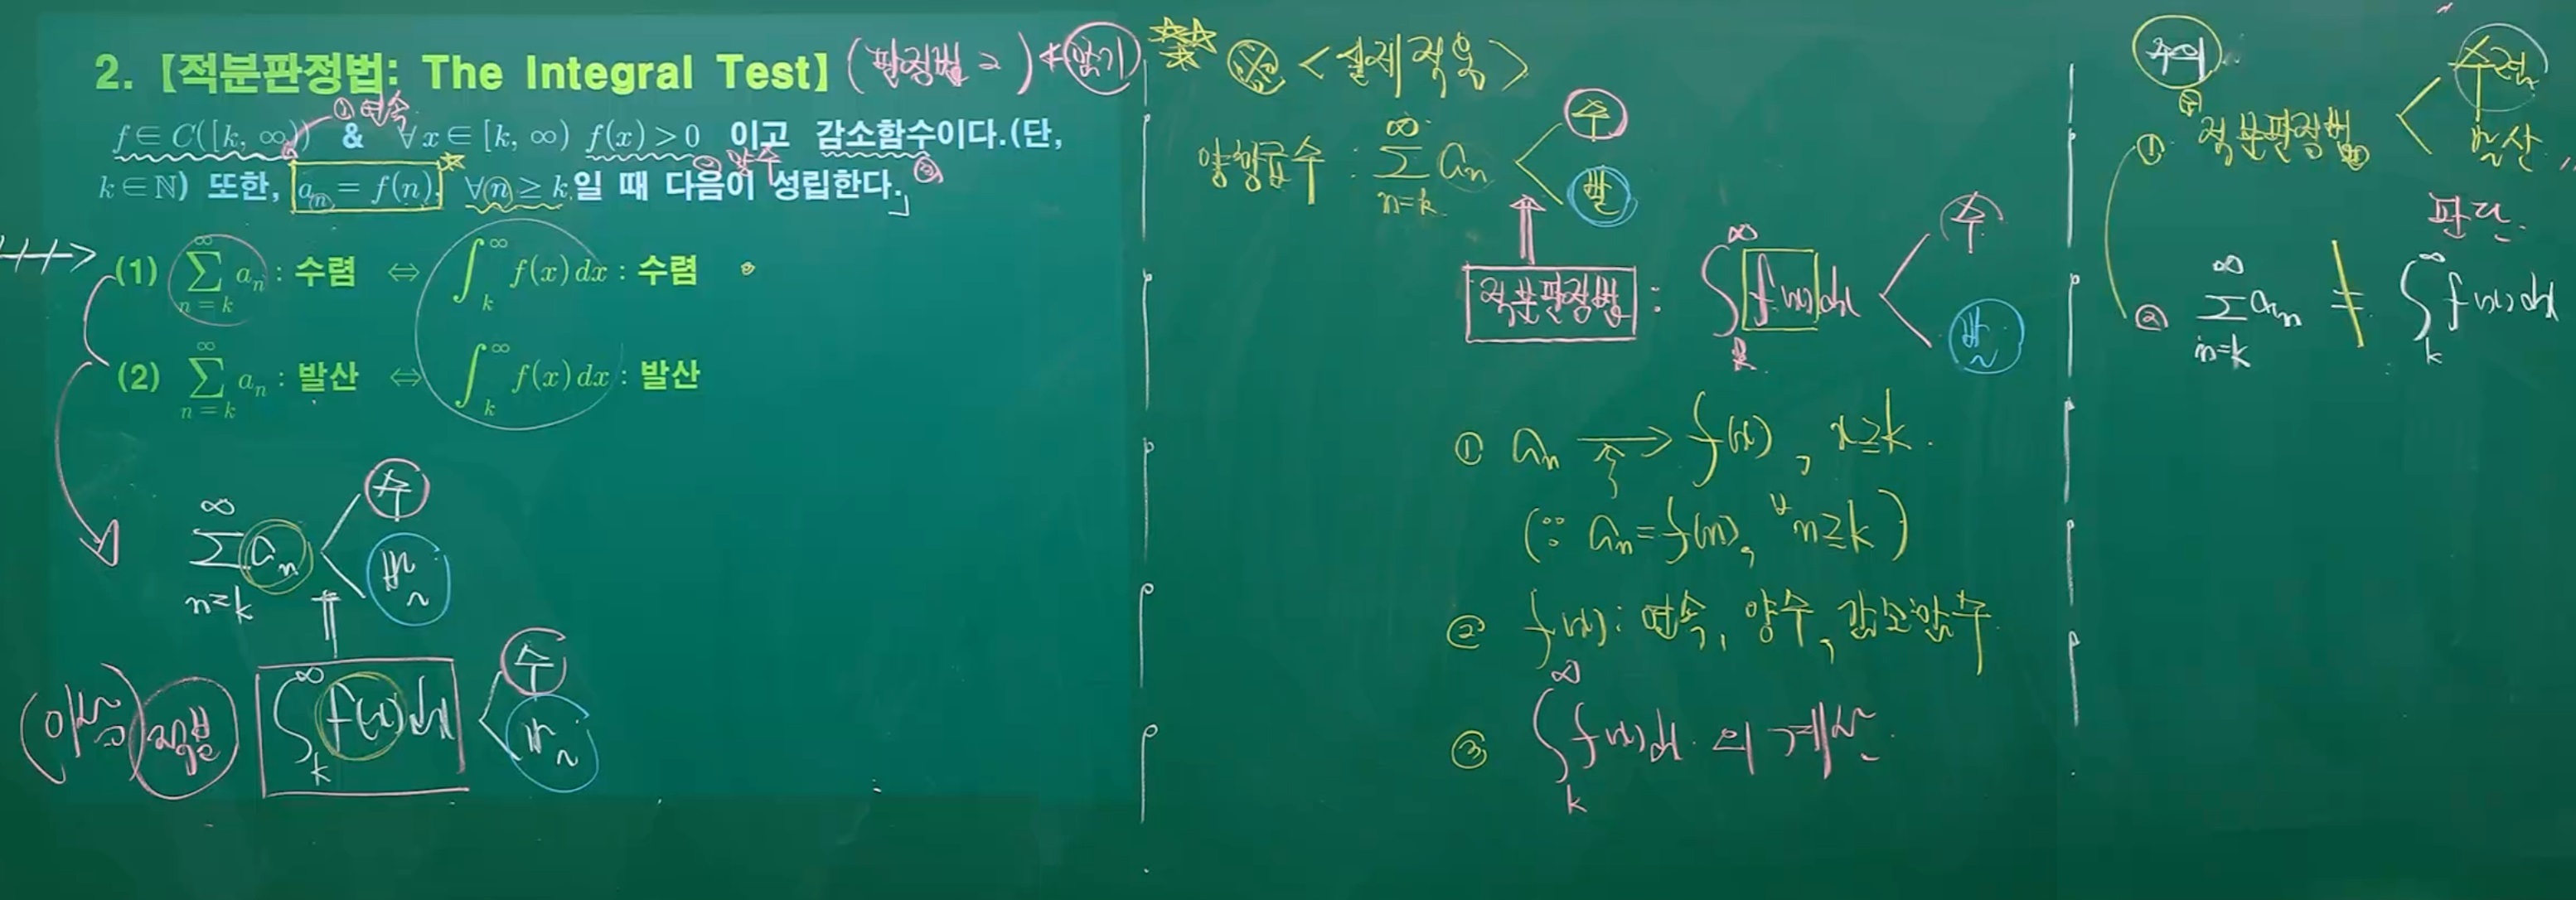 2. 【적분판정법: The Integral Test】 (판정법 2) * 암기
① 연속
f ∈ C([k, ∞)) & ∀x ∈ [k, ∞) f(x) > 0 이고 감소함수이다.(단,
② 양수 ③
k ∈ ℕ) 또한, a_n = f(n), ∀n ≥ k 일 때 다음이 성립한다.」
(1) ∑_{n=k}^{∞} a_n : 수렴 ⇔ ∫_k^∞ f(x)dx : 수렴
(2) ∑_{n=k}^{∞} a_n : 발산 ⇔ ∫_k^∞ f(x)dx : 발산
∑_{n=k}^{∞} a_n < 수 발
(이상) 적분 ∫_k^∞ f(x)dx < 수 발
※ <실제적용>
양항급수 : ∑_{n=k}^{∞} a_n < 수 발
적분판정법 : ∫_k^∞ f(x)dx < 수 발
① a_n → f(x), x ≥ k.
(∵ a_n = f(n), ∀n ≥ k)
② f(x) : 연속, 양수, 감소함수
③ ∫_k^∞ f(x)dx 의 계산.
주의
① 적분판정법 < 수렴 발산 판단.
② ∑_{n=k}^{∞} a_n ≠ ∫_k^∞ f(x)dx